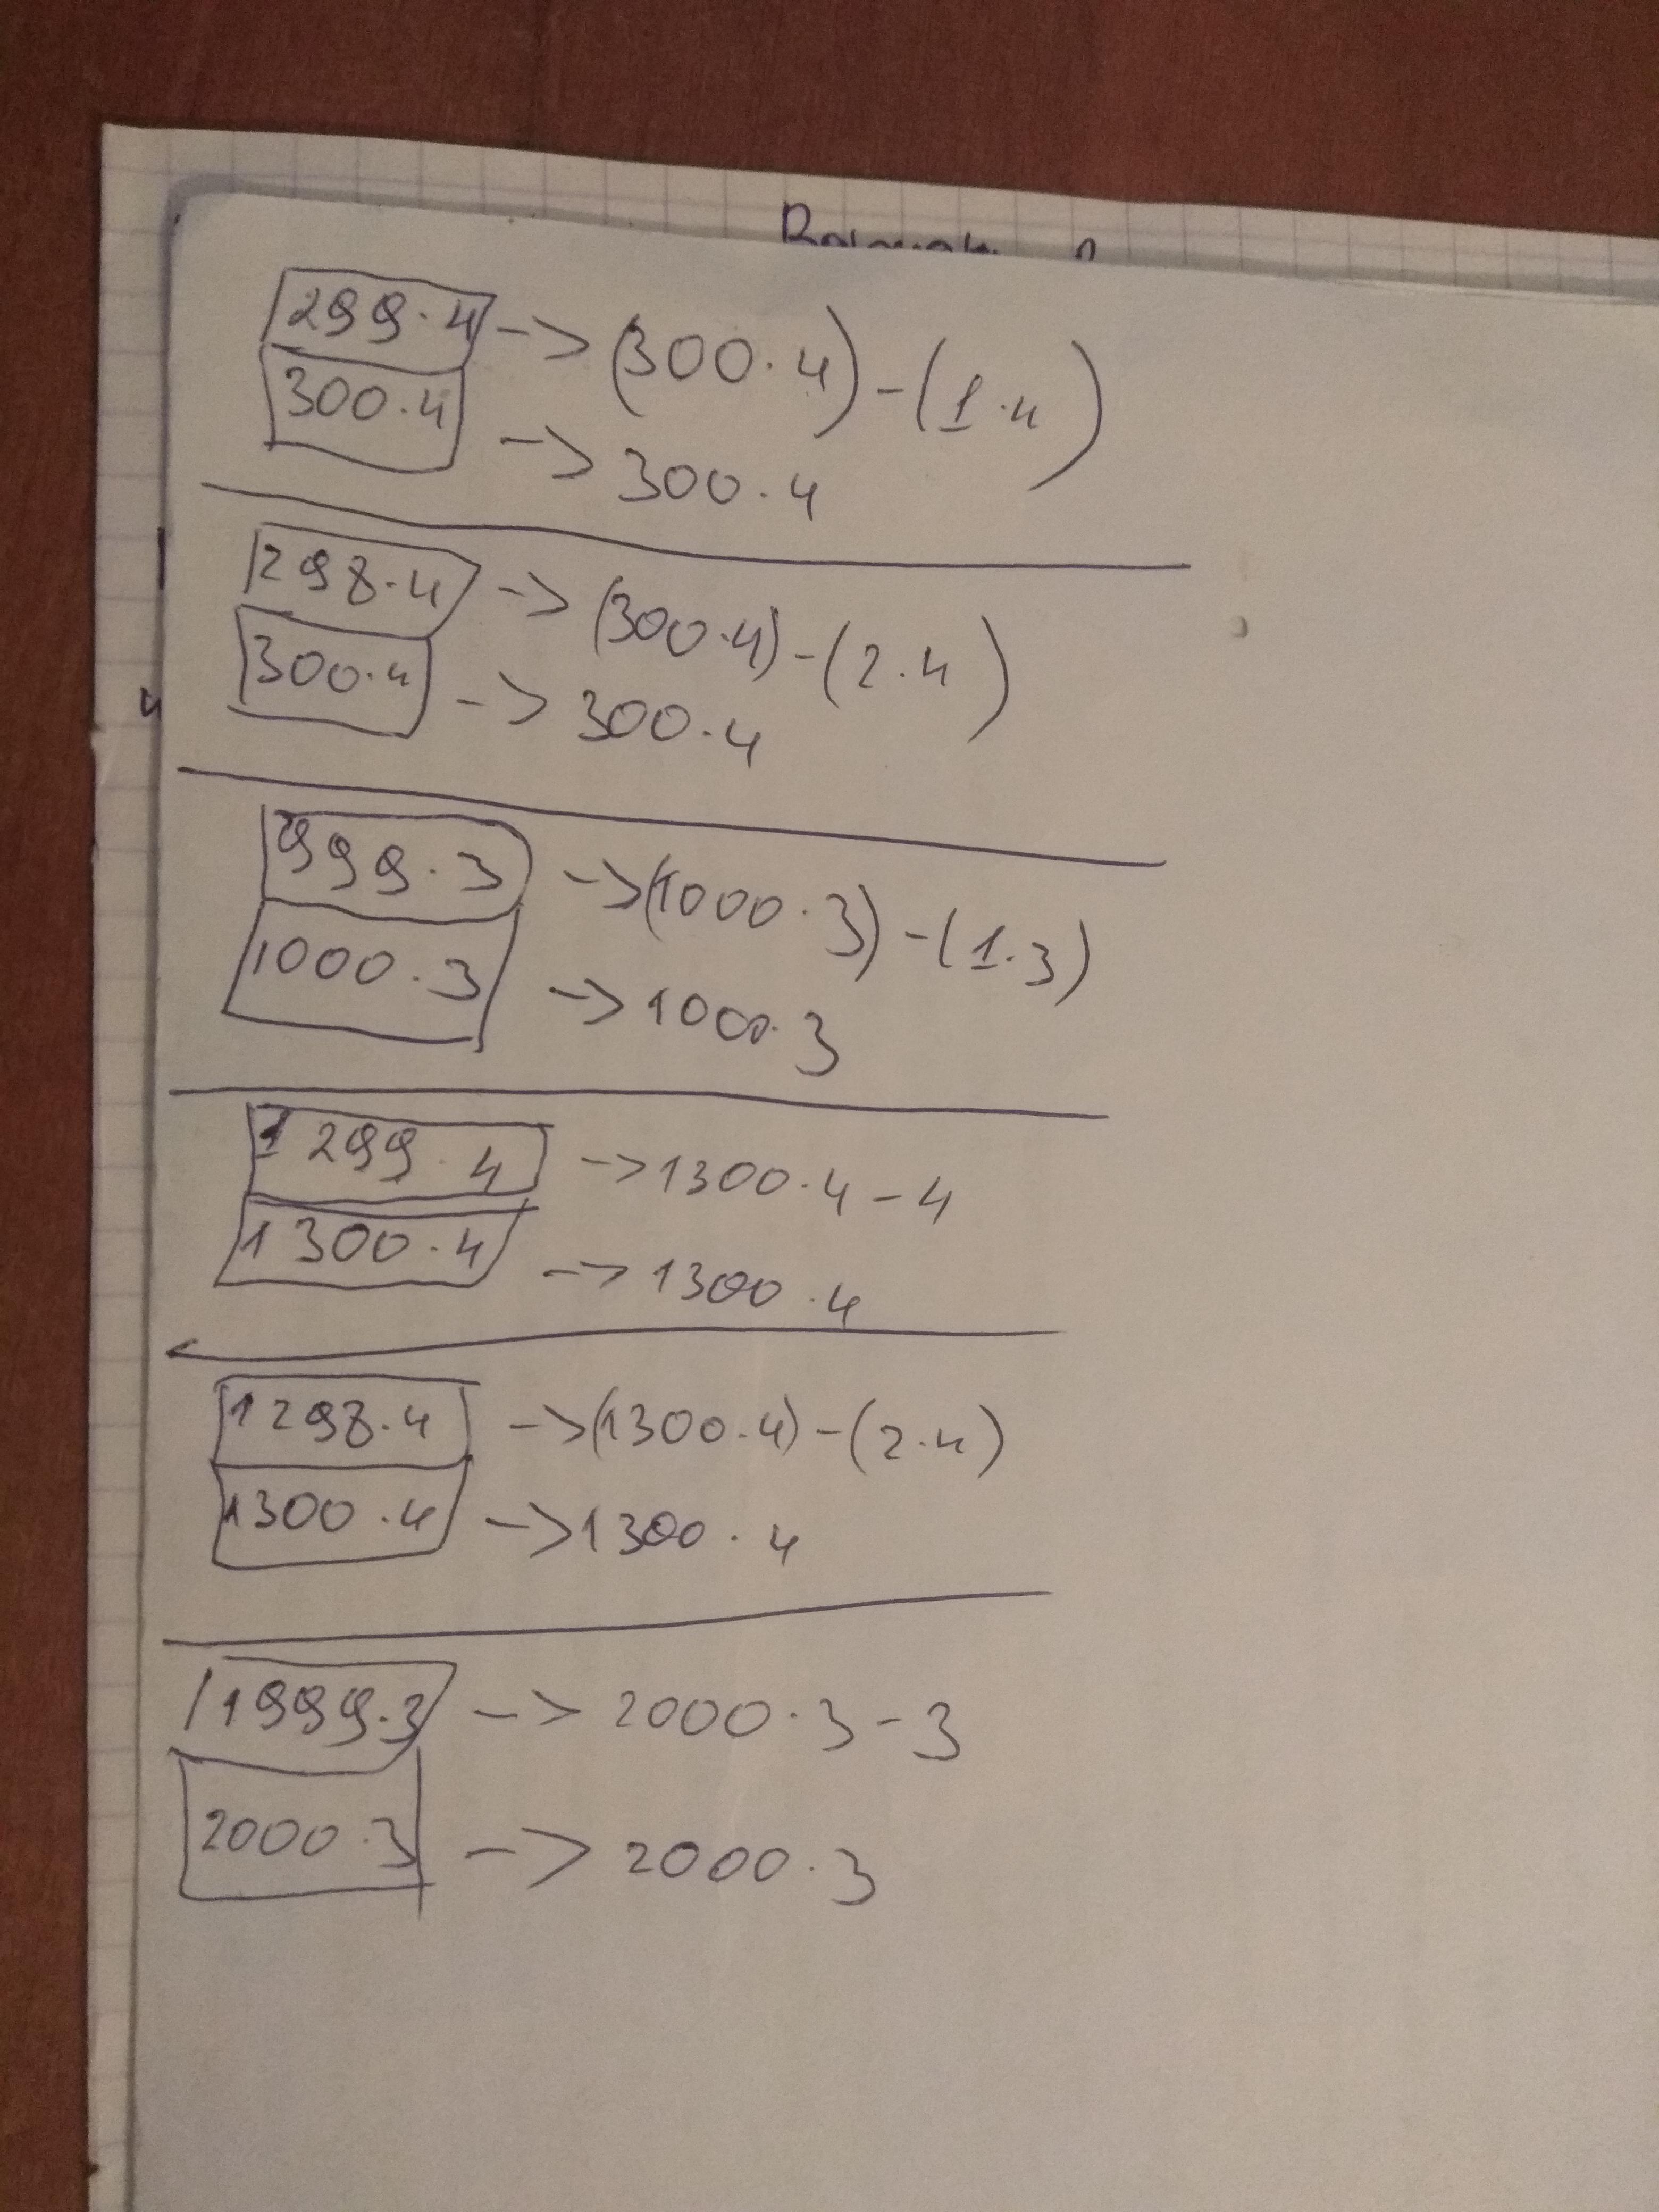 299·4 -> (300·4)-(1·4)
300·4 -> 300·4
298·4 -> (300·4)-(2·4)
300·4 -> 300·4
999·3 -> (1000·3)-(1·3)
1000·3 -> 1000·3
1299·4 -> 1300·4-4
1300·4 -> 1300·4
1298·4 -> (1300·4)-(2·4)
1300·4 -> 1300·4
1999·3 -> 2000·3-3
2000·3 -> 2000·3